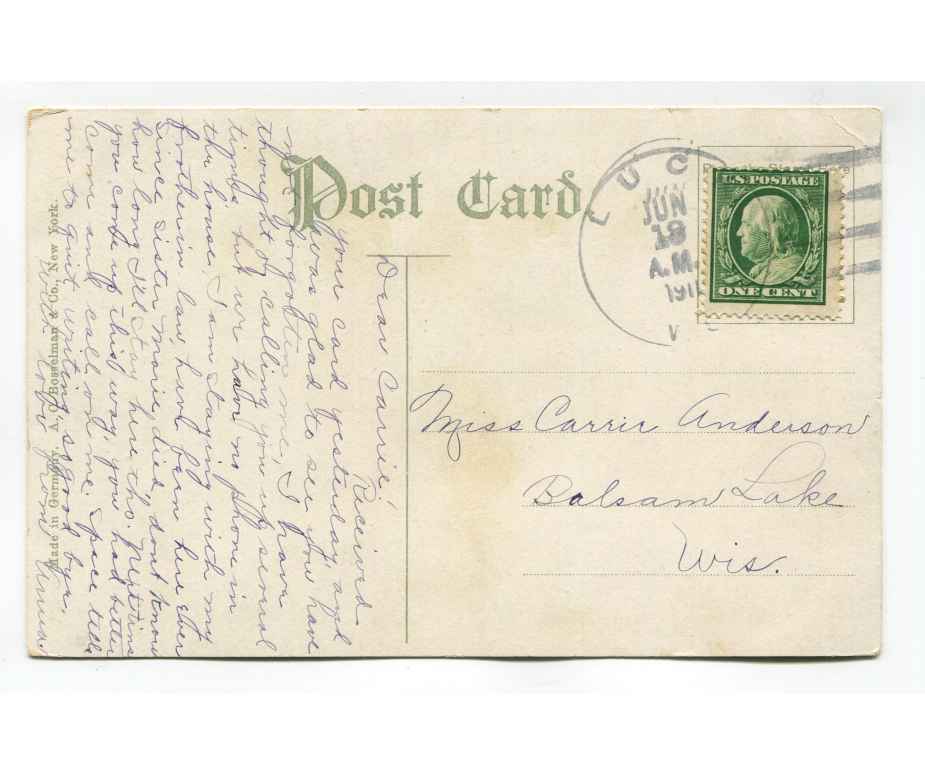 Post Card
U.S. POSTAGE
ONE CENT
L U C
JUN
18
A.M.
191
Miss Carrie Anderson
Balsam Lake
Wis.
Dear Carrie,
Received
your card yesterday and
was glad to see you have
not forgotten me, I have
thought of calling you up several
times but we have no phone in
the house. I am staying with my
brother in law have been here ever
since sister Marie died, dont know
how long I'll stay here tho. Next time
you come up this way, you had better
come and call on me. Space tells
me to quit writing, so good bye,
from Anna.
Made in Germany. A. O. Bosselman & Co., New York.